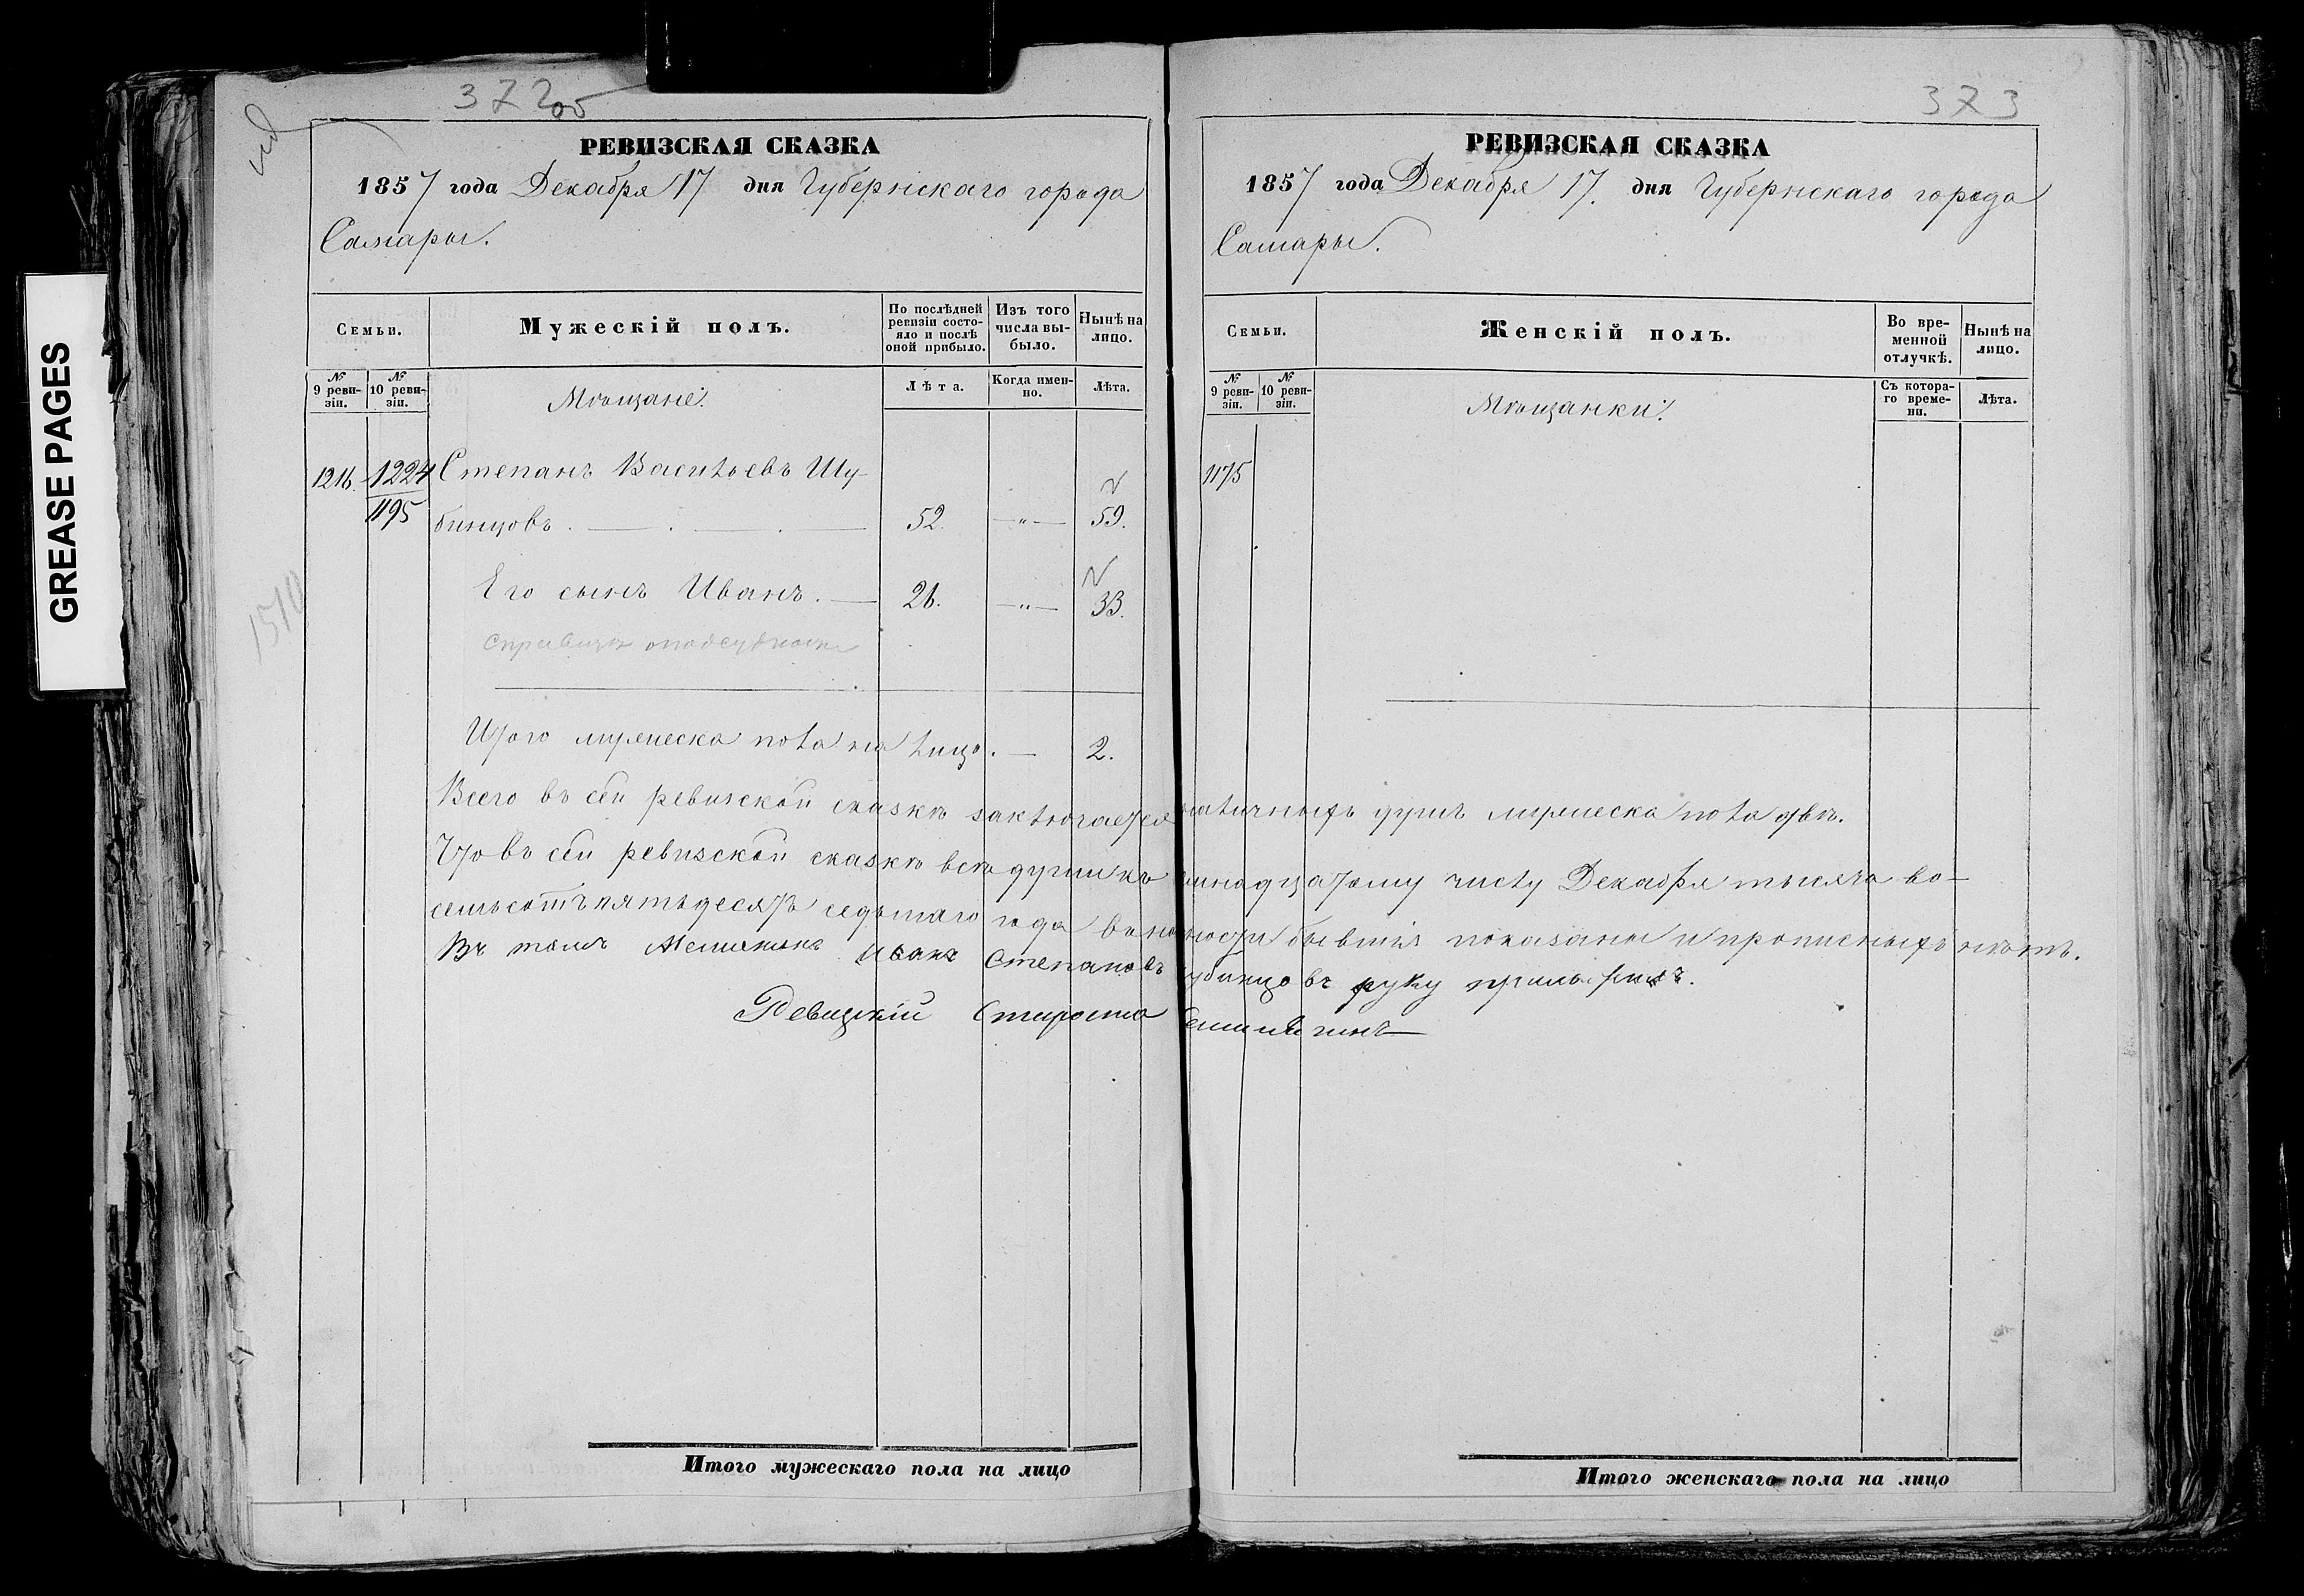 GREASE PAGES
372 об
РЕВИЗСКАЯ СКАЗКА
1857 года Декабря 17 дня Губернскаго города
Самары.
Семьи.
Мужескій полъ.
По послѣдней ревизіи состояло и послѣ оной прибыло.
Изъ того числа выбыло.
Нынѣ на лицо.
№ 9 ревизіи.
№ 10 ревизіи.
Мѣщане:
Лѣта.
Когда именно.
Лѣта.
1216. 1224 Степанъ Васильевъ Шу-
1195 бинцовъ. 52. —"— 59.
Его сынъ Иванъ. — 26. —"— 33.
Итого мужеска пола на лицо. — 2.
373
РЕВИЗСКАЯ СКАЗКА
1857 года Декабря 17. дня Губернскаго города
Самары.
Семьи.
Женскій полъ.
Во временной отлучкѣ.
Нынѣ на лицо.
№ 9 ревизіи.
№ 10 ревизіи.
Мѣщанки:
Съ котораго времени.
Лѣта.
1175
Всего въ сей ревизской сказкѣ заключается наличныхъ душъ мужеска пола двѣ.
Что въ сей ревизской сказкѣ всѣ души къ тому числу Декабря тысяча во-
семьсотъ пятьдесятъ седьмаго года въ бывшія показаны и прописныхъ нѣтъ.
Въ томъ Иванъ Степановъ Шубинцовъ руку приложилъ.
Ревизскій Староста
Итого мужескаго пола на лицо
Итого женскаго пола на лицо